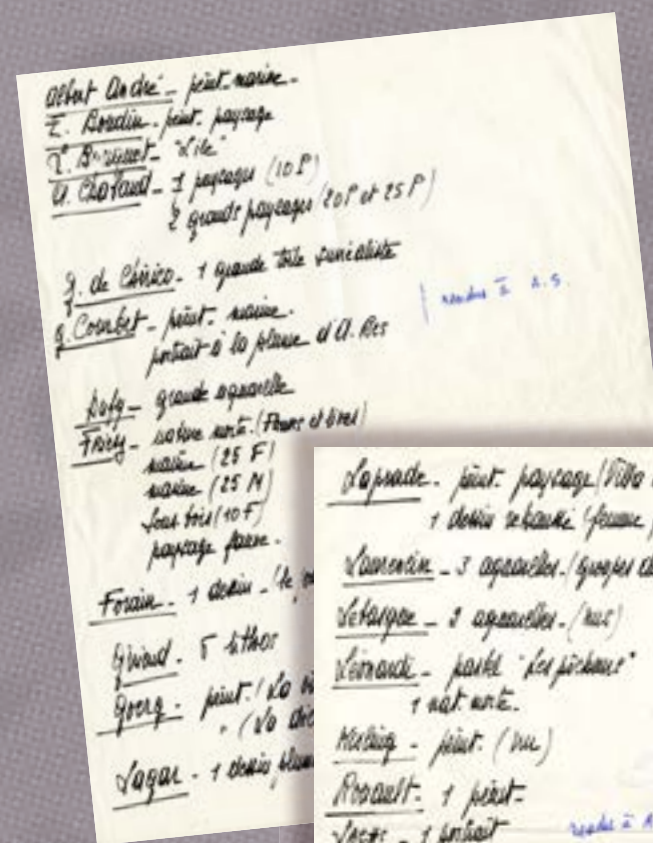 Albert André - peint. marine -
E. Boudin - peint. paysage
- "L'île"
A. Chabaud - 1 paysages (10 P)
2 grands paysages (20P et 25 P)
G. de Chirico - 1 grande toile surréaliste
G. Courbet - peint. marine.
portrait à la plume d'A.
rendu à A.S.
Dufy - grande aquarelle
Friesz - nature morte. (Fleurs et livres)
marine (25 F)
marine (25 M)
Sous bois (10 F)
paysage
Forain - 1 dessin - (le
5 lithos
Goerg - peint. (La
" (La
Lagar - 1 dessin plume
Laprade - peint. paysage (Villa
1 dessin rehaussé (femme
Laurencin - 3 aquarelles - (groupes de
Lebasque - 2 aquarelles - (nus)
Léonardi - pastel "Les pêcheurs"
1 nat. morte.
Kisling - peint. (nu)
Rouault - 1 peint -
1 portrait
rendu à